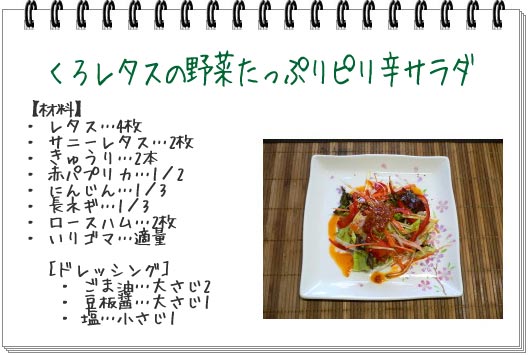 くろレタスの野菜たっぷりピリ辛サラダ
【材料】
・ レタス…4枚
・ サニーレタス…2枚
・ きゅうり…2本
・ 赤パプリカ…1/2
・ にんじん…1/3
・ 長ネギ…1/3
・ ロースハム…2枚
・ いりゴマ…適量
[ドレッシング]
・ ごま油…大さじ2
・ 豆板醤…大さじ1
・ 塩…小さじ1